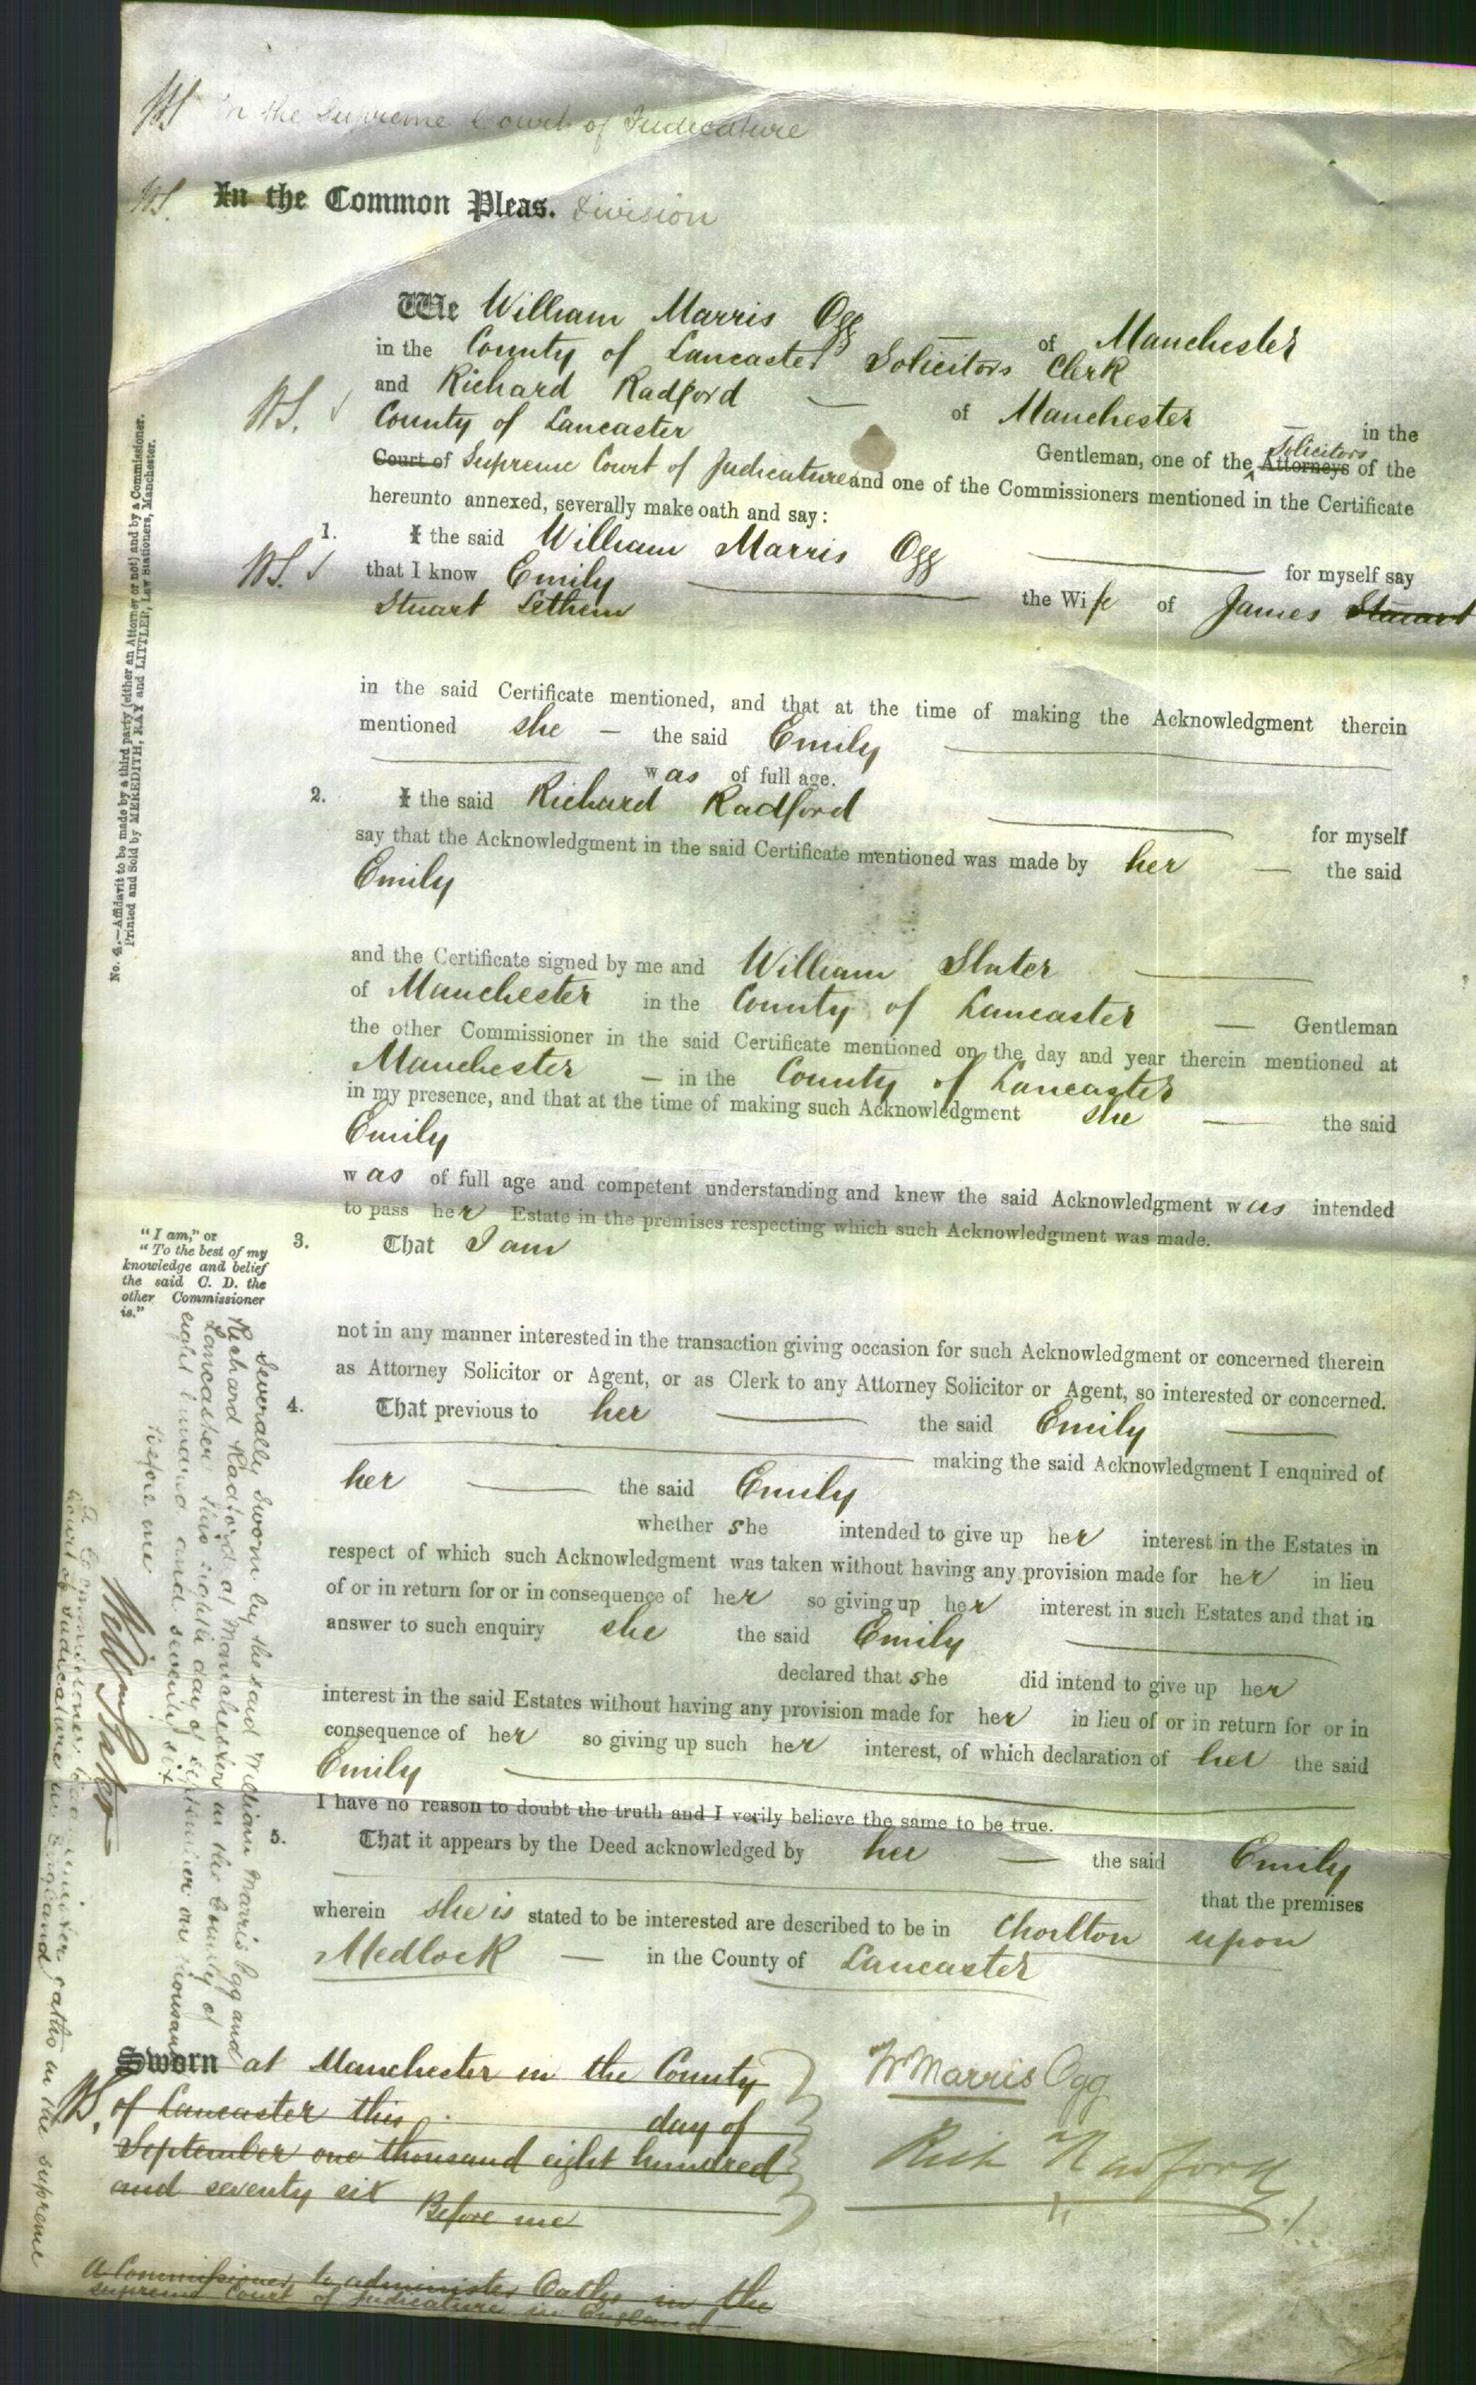 WS In the Supreme Court of Judicature
WS. In the Common Pleas. Division
We William Marris Ogg — of Manchester
in the County of Lancaster Solicitors Clerk
and Richard Radford — of Manchester in the
WS. County of Lancaster Gentleman, one of the Solicitors Attorneys of the
Court of Supreme Court of Judicature and one of the Commissioners mentioned in the Certificate
hereunto annexed, severally make oath and say:
1. I the said William Marris Ogg — for myself say
WS. that I know Emily — the Wife of James Stuart
Stuart Lethem
in the said Certificate mentioned, and that at the time of making the Acknowledgment therein
mentioned she — the said Emily —
was of full age.
2. I the said Richard Radford — for myself
say that the Acknowledgment in the said Certificate mentioned was made by her — the said
Emily
and the Certificate signed by me and William Slater —
of Manchester in the County of Lancaster — Gentleman
the other Commissioner in the said Certificate mentioned on the day and year therein mentioned at
Manchester — in the County of Lancaster
in my presence, and that at the time of making such Acknowledgment she — the said
Emily
was of full age and competent understanding and knew the said Acknowledgment was intended
to pass her Estate in the premises respecting which such Acknowledgment was made.
3. That I am
"I am," or
"To the best of my
knowledge and belief
the said C. D. the
other Commissioner
is."
not in any manner interested in the transaction giving occasion for such Acknowledgment or concerned therein
as Attorney Solicitor or Agent, or as Clerk to any Attorney Solicitor or Agent, so interested or concerned.
4. That previous to her — the said Emily —
— making the said Acknowledgment I enquired of
her — the said Emily
whether she intended to give up her interest in the Estates in
respect of which such Acknowledgment was taken without having any provision made for her in lieu
of or in return for or in consequence of her so giving up her interest in such Estates and that in
answer to such enquiry she the said Emily —
declared that she did intend to give up her
interest in the said Estates without having any provision made for her in lieu of or in return for or in
consequence of her so giving up such her interest, of which declaration of her the said
Emily —
I have no reason to doubt the truth and I verily believe the same to be true.
5. That it appears by the Deed acknowledged by her — the said Emily
— that the premises
wherein she is stated to be interested are described to be in Chorlton upon
Medlock — in the County of Lancaster
Sworn at Manchester in the County
WS. of Lancaster this day of
September one thousand eight hundred
and seventy six
Before me
A Commissioner to administer Oaths in the
Supreme Court of Judicature in England
W Marris Ogg
Rich Radford
Severally Sworn by the said William Marris Ogg and
Richard Radford at Manchester in the County of
Lancaster this eighth day of September one thousand
eight hundred and seventy six
Before me
Willm Slater
A Commissioner to administer oaths in the supreme
Court of Judicature in England
No. 4.—Affidavit to be made by a third party (either an Attorney or not) and by a Commissioner.
Printed and Sold by MEREDITH, RAY and LITTLER, Law Stationers, Manchester.